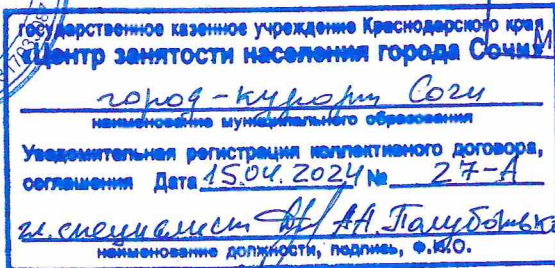 государственное казенное учреждение Краснодарского края
«Центр занятости населения города Сочи»
город-курорт Сочи
наименование муниципального образования
Уведомительная регистрация коллективного договора,
соглашения Дата 15.04.2024 № 27-А
гл. специалист А.А.
наименование должности, подпись, Ф.И.О.